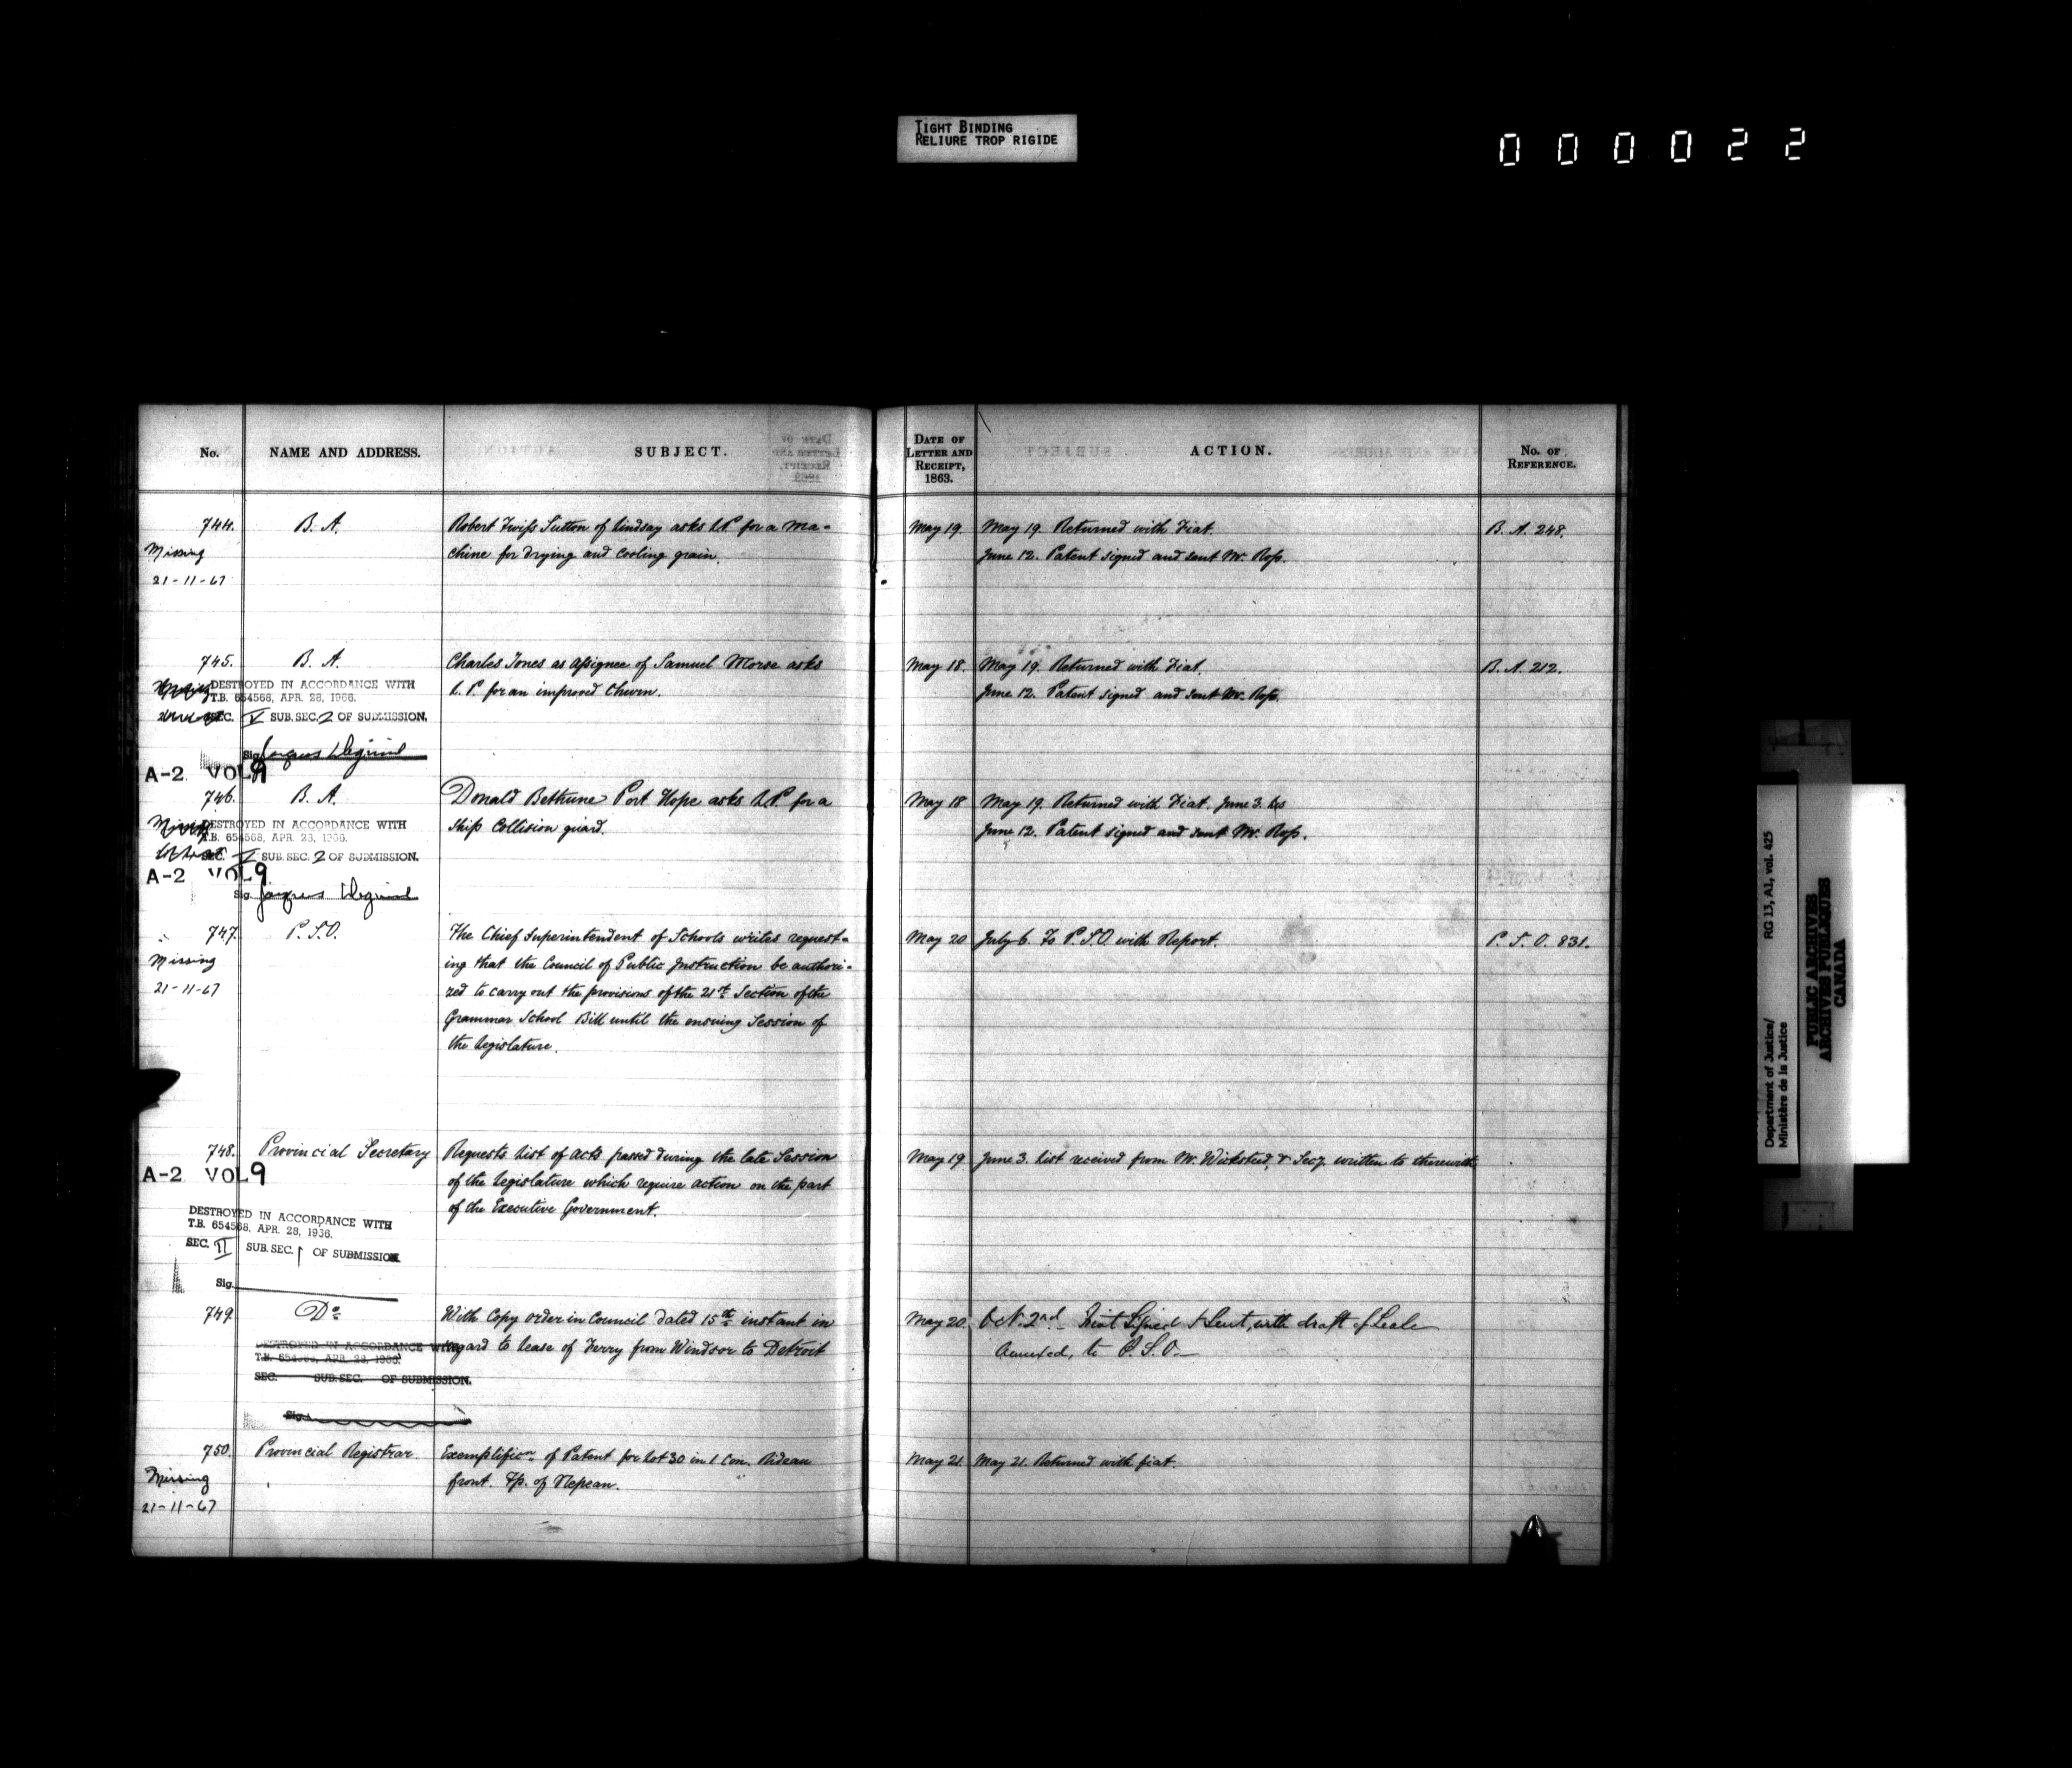 TIGHT BINDING
RELIURE TROP RIGIDE
000022
No. NAME AND ADDRESS. SUBJECT. DATE OF LETTER AND RECEIPT, 1863. ACTION. No. OF REFERENCE.
744. B. A. Robert Twiss Sutton of Lindsay asks L.P. for a ma- May 19. May 19. Returned with Fiat. B. A. 248.
Missing chine for drying and cooling grain. June 12. Patent signed and sent Mr. Ross.
21-11-67
745. B. A. Charles Jones as assignee of Samuel Morse asks May 18. May 19. Returned with Fiat. B. A. 212.
DESTROYED IN ACCORDANCE WITH L. P. for an improved Churn. June 12. Patent signed and sent Mr. Ross.
T.B. 654568, APR. 28, 1966.
SEC. V SUB. SEC. 2 OF SUBMISSION.
Sig.
A-2 VOL 9
746. B. A. Donald Bethune Port Hope asks L.P. for a May 18 May 19. Returned with Fiat. June 3.
Ship Collision guard. June 12. Patent signed and sent Mr. Ross.
DESTROYED IN ACCORDANCE WITH
T.B. 654568, APR. 28, 1966.
SEC. V SUB. SEC. 2 OF SUBMISSION.
A-2 VOL 9
Sig.
747. P. S. O. The Chief Superintendent of Schools writes request- May 20 July 6. To P. S. O. with Report. P. S. O. 831.
Missing ing that the Council of Public Instruction be authori-
21-11-67 zed to carry out the provisions of the 21st Section of the
Grammar School Bill until the ensuing Session of
the Legislature.
748. Provincial Secretary Requests List of Acts passed during the late Session May 19 June 3. List received from Mr. Wicksteed, & Secy. written to therewith
A-2 VOL 9 of the Legislature which require action on the part
of the Executive Government.
DESTROYED IN ACCORDANCE WITH
T.B. 654568, APR. 28, 1966.
SEC. II SUB. SEC. 1 OF SUBMISSION.
Sig.
749. Do With Copy Order in Council dated 15th instant in May 20. Oct. 2nd Fiat Signed & Sent, with draft of Lease
regard to lease of Ferry from Windsor to Detroit Annexed, to P. S. O.
DESTROYED IN ACCORDANCE WITH
T.B. 654568, APR. 28, 1966.
SEC. SUB. SEC. OF SUBMISSION.
Sig.
750. Provincial Registrar Exemplificn. of Patent for Lot 30 in 1 Con. Rideau May 21. May 21. Returned with fiat.
Missing front. Tp. of Nepean.
21-11-67
Department of Justice/ RG 13, A1, vol. 425
Ministère de la Justice
PUBLIC ARCHIVES
ARCHIVES PUBLIQUES
CANADA